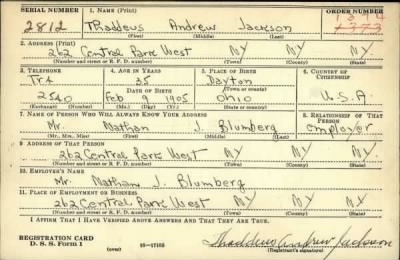 SERIAL NUMBER 1. NAME (Print) ORDER NUMBER
2812 Thaddeus Andrew Jackson
(First) (Middle) (Last)
2. ADDRESS (Print)
262 Central Park West NY NY NY
(Number and street or R. F. D. number) (Town) (County) (State)
3. TELEPHONE 4. AGE IN YEARS 5. PLACE OF BIRTH 6. COUNTRY OF CITIZENSHIP
Tr4 35 Dayton
DATE OF BIRTH (Town or county)
2540 Feb 9 1905 Ohio U.S.A
(Exchange) (Number) (Mo.) (Day) (Yr.) (State or country)
7. NAME OF PERSON WHO WILL ALWAYS KNOW YOUR ADDRESS 8. RELATIONSHIP OF THAT PERSON
Mr. Nathan J. Blumberg employer
(Mr., Mrs., Miss) (First) (Middle) (Last)
9. ADDRESS OF THAT PERSON
262 Central Park West NY NY NY
(Number and street or R. F. D. number) (Town) (County) (State)
10. EMPLOYER'S NAME
Mr. Nathan J. Blumberg
11. PLACE OF EMPLOYMENT OR BUSINESS
262 Central Park West NY NY NY
(Number and street or R. F. D. number) (Town) (County) (State)
I AFFIRM THAT I HAVE VERIFIED ABOVE ANSWERS AND THAT THEY ARE TRUE.
REGISTRATION CARD
D. S. S. FORM 1 (over) 16-17105 Thaddeus Andrew Jackson
(Registrant's signature)